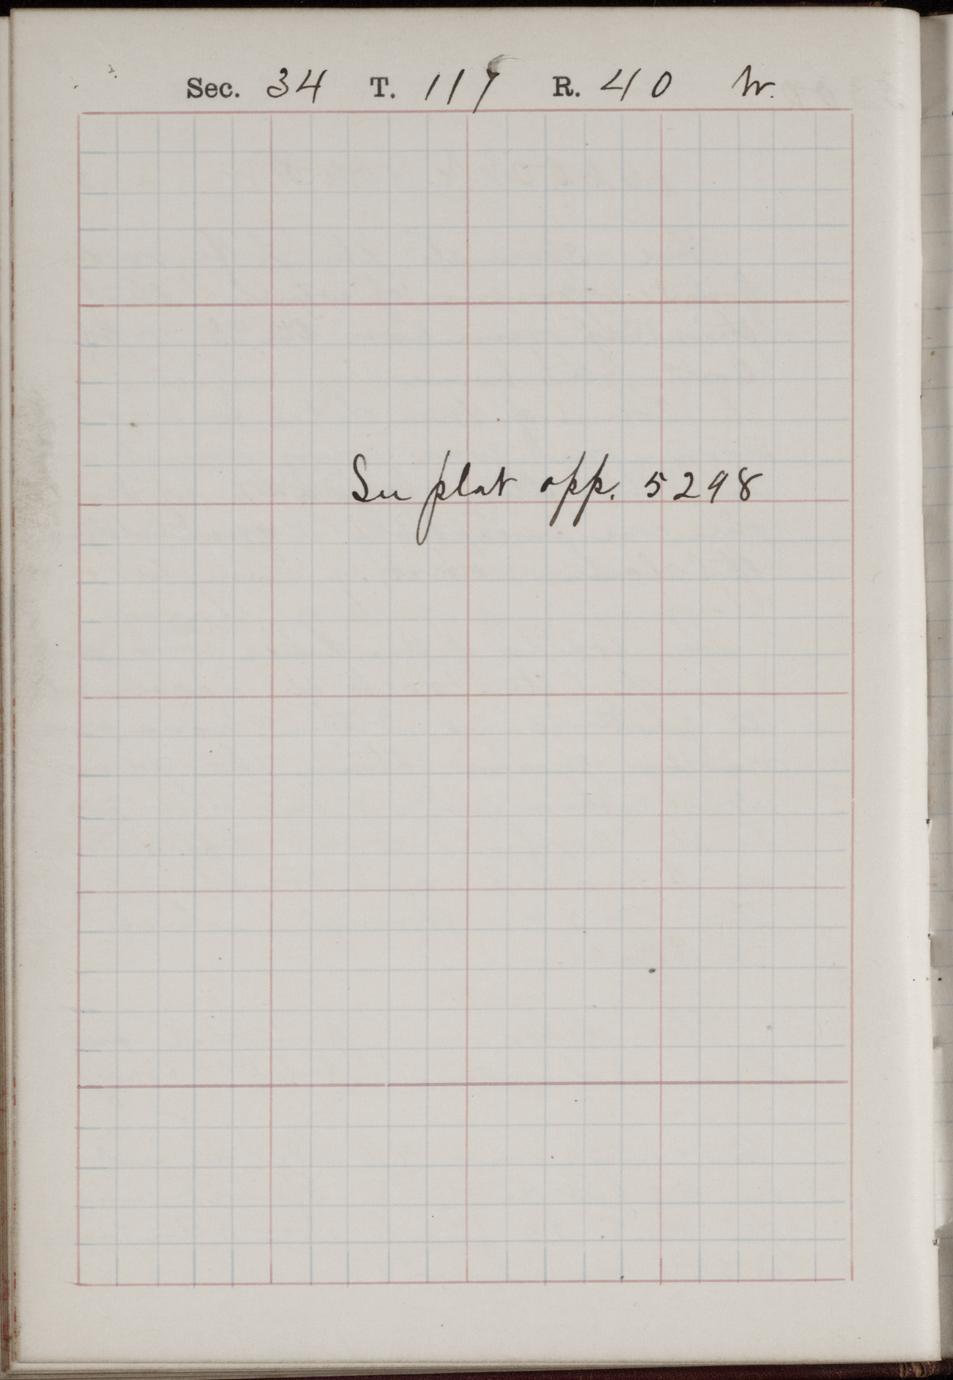 Sec. 34 T. 117 R. 40 W.
See plat opp. 5298